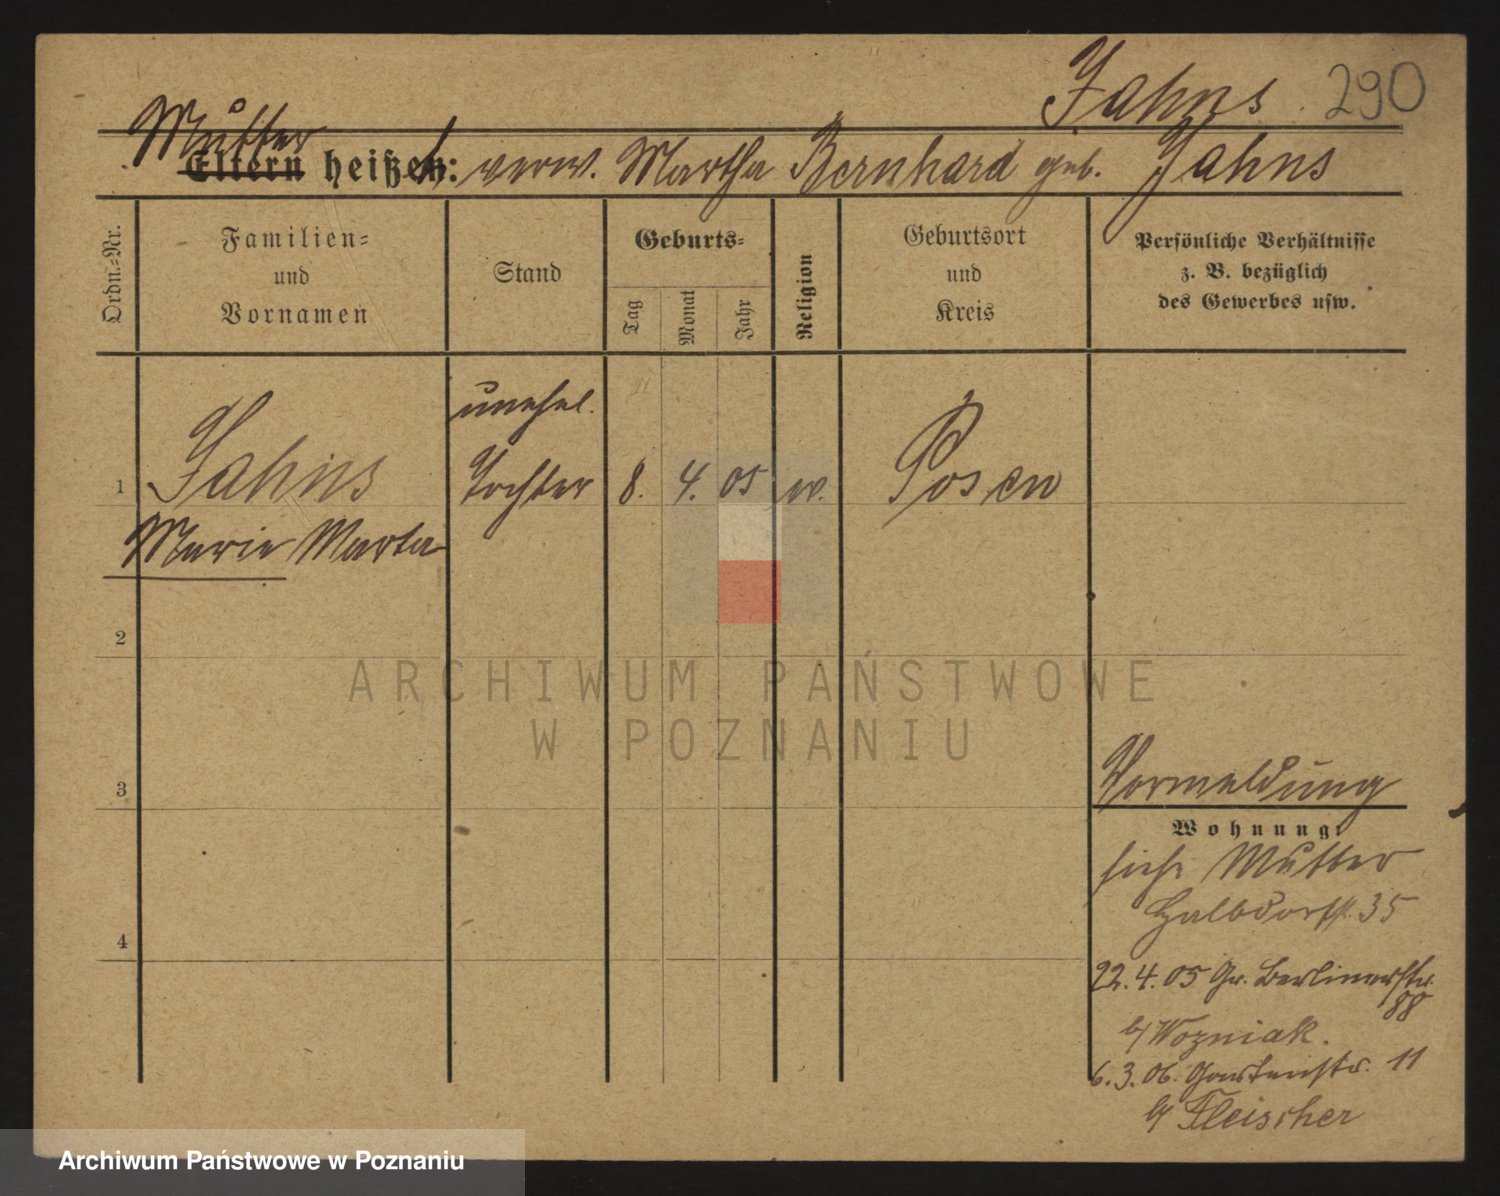 Jahns. 290
Mutter
Eltern heißen: verw. Martha Bernhard geb. Jahns
Ordn.-Nr.
Familien-
und
Vornamen
Stand
Geburts-
Tag
Monat
Jahr
Religion
Geburtsort
und
Kreis
Persönliche Verhältnisse
z. B. bezüglich
des Gewerbes usw.
unehel.
1 Jahns Tochter 8. 4. 05 w. Posen
Marie Marta
2
3
4
Vormeldung
Wohnung:
siehe Mutter
Halbdorfstr. 35
22. 4. 05 Gr. Berlinerstr.
88
b/ Wozniak.
6. 3. 06. Gartenstr. 11
b/ Fleischer
ARCHIWUM PAŃSTWOWE
W POZNANIU
Archiwum Państwowe w Poznaniu